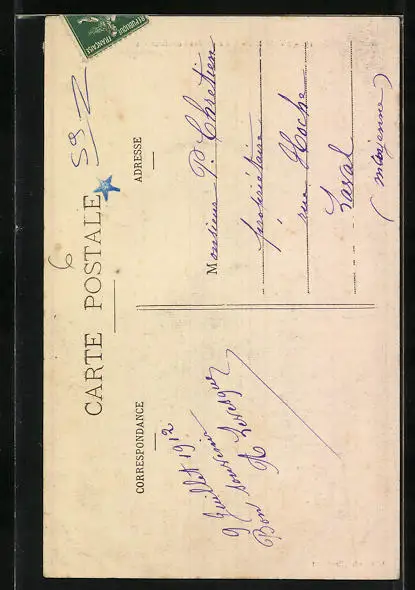 REPUBLIQUE FRANÇAISE
6
CARTE POSTALE
CORRESPONDANCE
9 Juillet 1912
Bon souvenir
A Levesque
ADRESSE
Monsieur P. Chrétien
propriétaire
rue Hoche
Laval
(Mayenne)